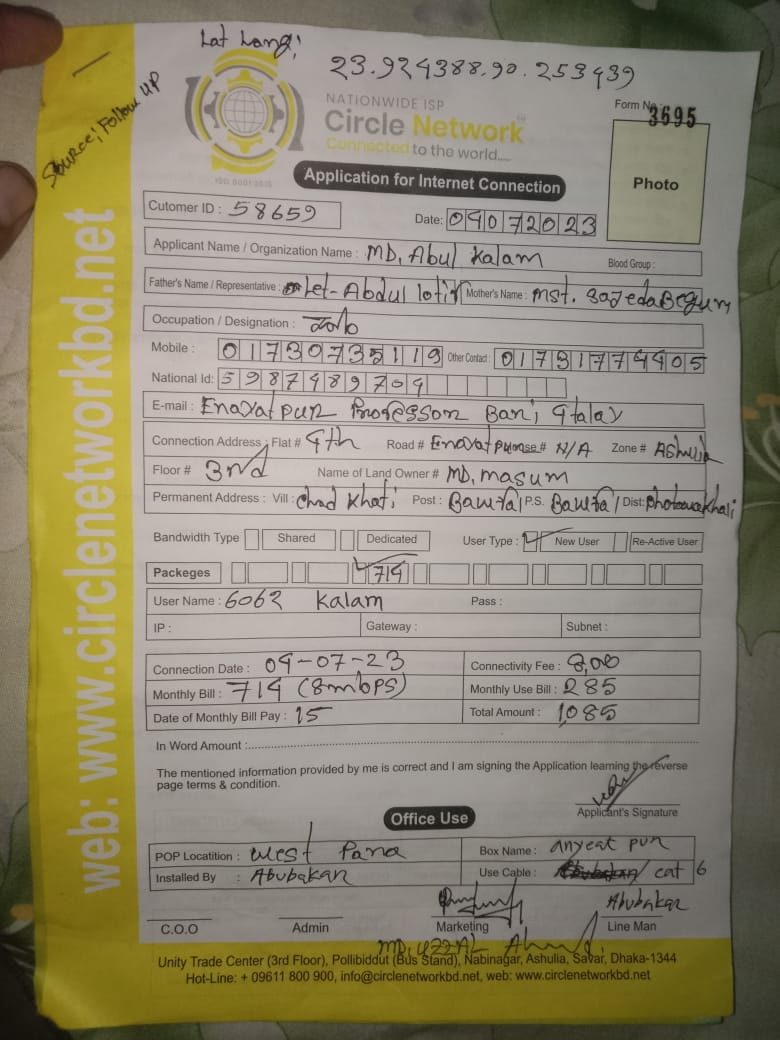 Lat Lang;
23.924388.90.253439
Source; Follow UP
NATIONWIDE ISP
Circle Network
Connected to the world....
ISO 9001:2015
Form No : 3695
Photo
Application for Internet Connection
Cutomer ID : 58659
Date: 04072023
Applicant Name / Organization Name : MD, Abul Kalam
Blood Group :
Father's Name / Representative : Let-Abdul Mother's Name : mst. Sajeda Begum
Occupation / Designation :
Mobile : 01730735119 Other Contact : 01731774405
National Id: 5987489704
E-mail : Enayatpur Professor Bari
Connection Address : Flat # 4th Road # Enayatpur House # N/A Zone # Ashulia
Floor # 3nd Name of Land Owner # MD, masum
Permanent Address : Vill : Chad Khati Post : P.S. Dist:
Bandwidth Type Shared Dedicated User Type : New User Re-Active User
Packeges 714
User Name : 6062 Kalam Pass :
IP : Gateway : Subnet :
Connection Date : 04-07-23 Connectivity Fee : 800
Monthly Bill : 714 (8mbps) Monthly Use Bill : 285
Date of Monthly Bill Pay : 15 Total Amount : 1,085
In Word Amount :
The mentioned information provided by me is correct and I am signing the Application learning the reverse
page terms & condition.
Applicant's Signature
Office Use
POP Locatition : west Para Box Name : anyeat pur
Installed By : Abubakar Use Cable : cat 6
Abubakar
C.O.O Admin Marketing Line Man
MD, UZZAL Ahmd
Unity Trade Center (3rd Floor), Pollibiddut (Bus Stand), Nabinagar, Ashulia, Savar, Dhaka-1344
Hot-Line: + 09611 800 900, info@circlenetworkbd.net, web: www.circlenetworkbd.net
web: www.circlenetworkbd.net